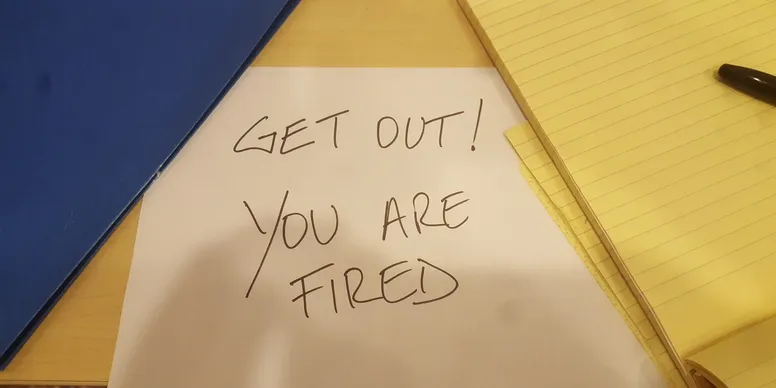 GET OUT!
YOU ARE
FIRED